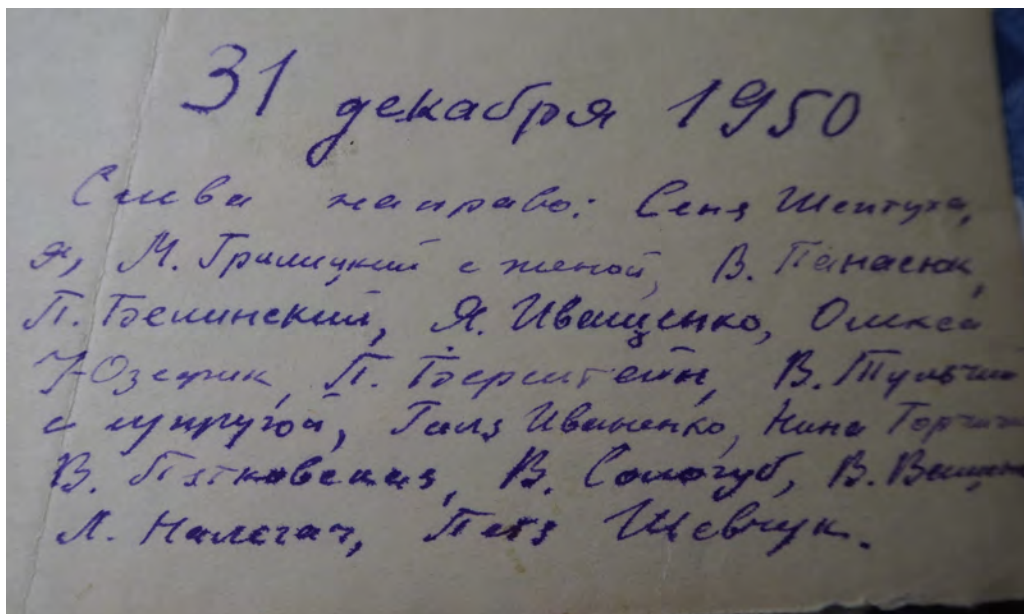 31 декабря 1950
Слева направо: Сеня Шептуха,
я, М. Грилицкий с женой, В. Панасюк,
П. Белинский, Я. Иващенко, Олекса
Юзефик, П. Берштейн, В. Тульчин
с супругой, Галя Иваненко, Нина
В. Пятковская, В. Сологуб, В.
Л. Налегач, Петя Шевчук.